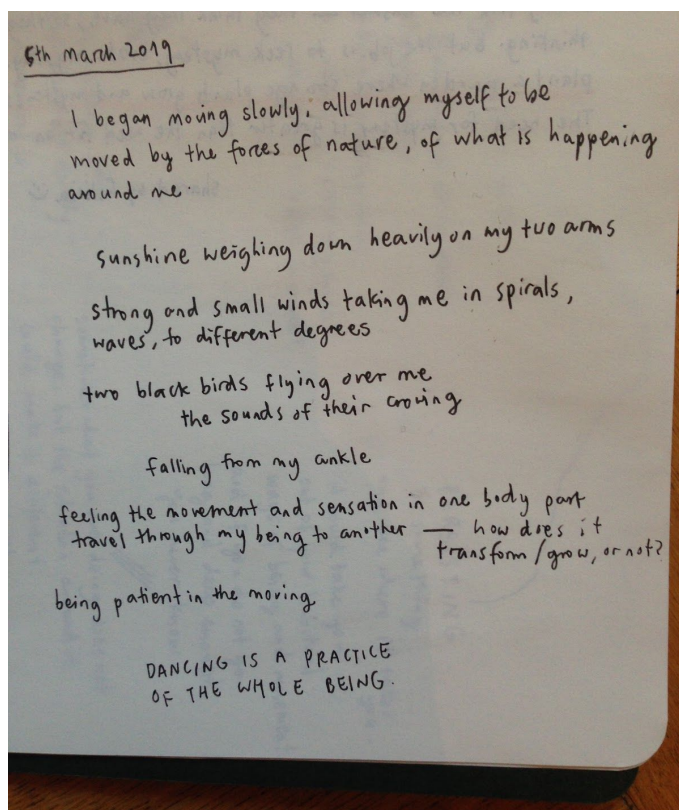 5th march 2019
I began moving slowly, allowing myself to be
moved by the forces of nature, of what is happening
around me.
sunshine weighing down heavily on my two arms
strong and small winds taking me in spirals,
waves, to different degrees
two black birds flying over me
the sounds of their crowing
falling from my ankle
feeling the movement and sensation in one body part
travel through my being to another — how does it
transform/grow, or not?
being patient in the moving
DANCING IS A PRACTICE
OF THE WHOLE BEING.